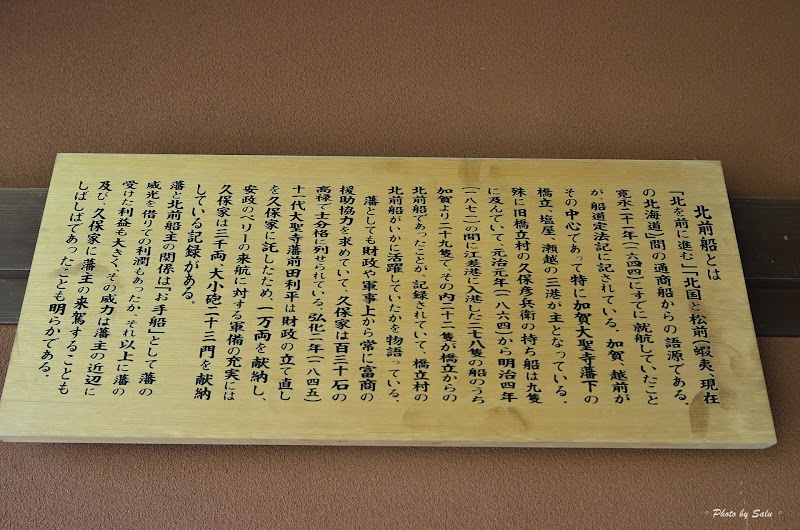 北前船とは
「北を前に進む」「北国と松前(蝦夷、現在
の北海道)間の通商船からの語源である。
寛永二十一年(一六四四)にすでに就航していたこと
が船道定法記に記されている。加賀、越前が
その中心であって特に加賀大聖寺藩下の
橋立、塩屋、瀬越の三港が主となっている。
殊に旧橋立村の久保彦兵衛の持ち船は九隻
に及んでいて、元治元年(一八六四)から明治四年
(一八七一)の間に江差港に入港した二七八隻の船のうち
加賀より二十九隻で、その内二十二隻が橋立からの
北前船であったことが、記録されていて、橋立村の
北前船がいかに活躍していたかを物語っている。
藩としても財政や軍事上から常に富商の
援助協力を求めていて、久保家は百三十石の
高禄で士分格に列せられている。弘化二年(一八四五)
十一代大聖寺藩前田利平は財政の立て直し
を久保家に託したため、一万両を献納し、
安政のペリーの来航に対する軍備の充実には
久保家は三千両、大小砲二十三門を献納
している記録がある。
藩と北前船主の関係は「お手船」として藩の
威光を借りての利潤もあったが、それ以上に藩の
受けた利益も大きく、その威力は藩主の近辺に
及び、久保家に藩主の来駕することも
しばしばであったことも明らかである。
Photo by Salu